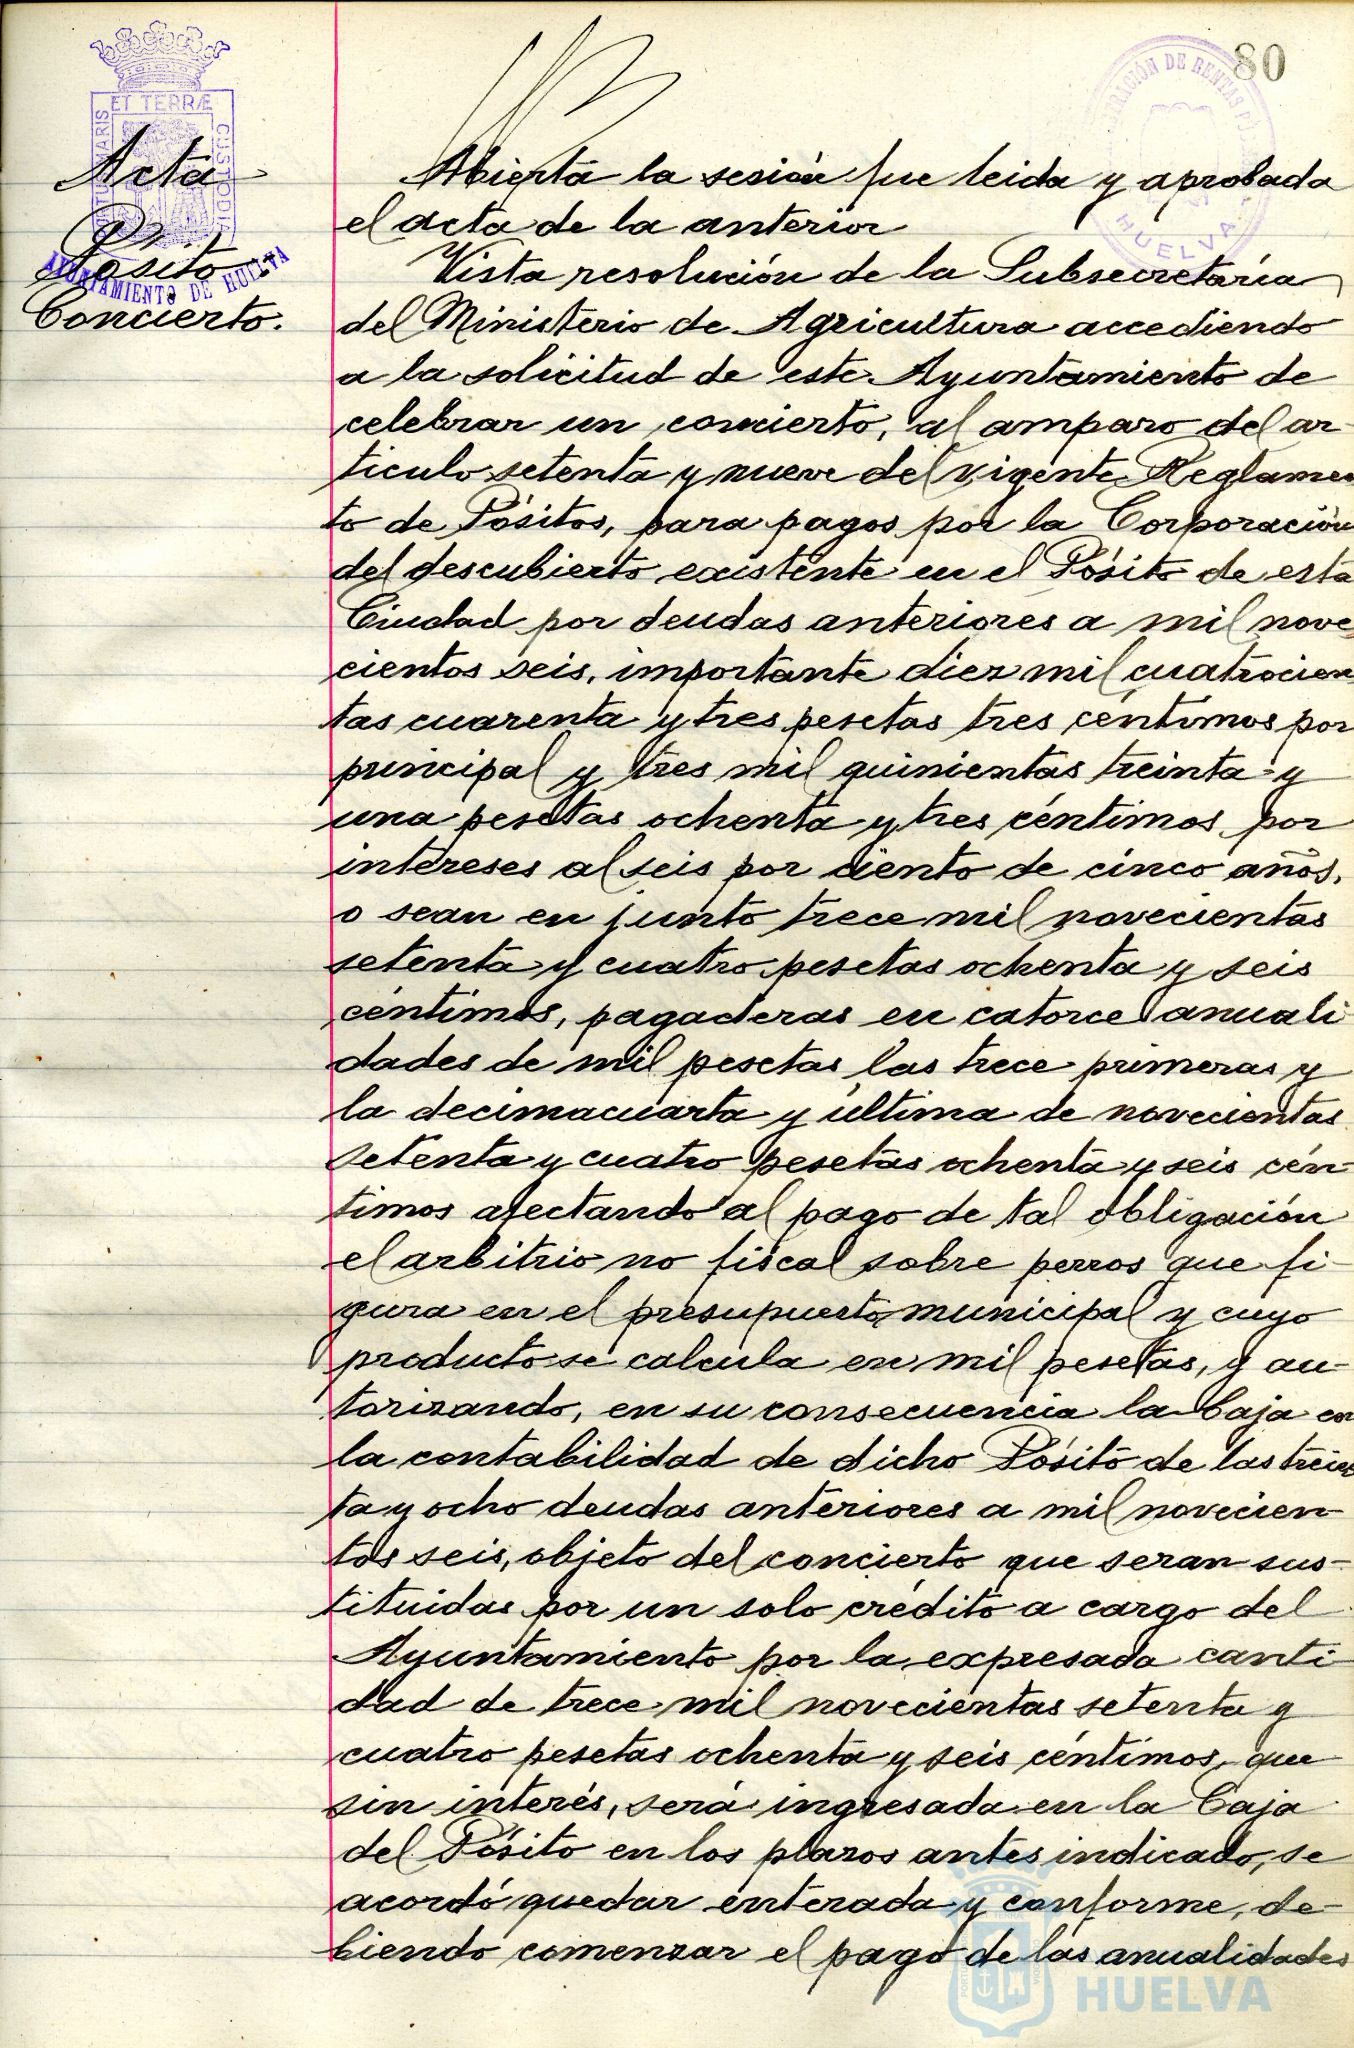 80
PORTUS MARIS ET TERRÆ CUSTODIA
AYUNTAMIENTO DE HUELVA
HUELVA
Acta
Pósito
Concierto.
Abierta la sesión fue leida y aprobada
el acta de la anterior
Vista resolución de la Subsecretaría
del Ministerio de Agricultura accediendo
a la solicitud de este Ayuntamiento de
celebrar un concierto, al amparo del ar-
ticulo setenta y nueve del vigente Reglamen
to de Pósitos, para pagos por la Corporación
del descubierto existente en el Pósito de esta
Ciudad por deudas anteriores a mil nove
cientos seis, importante diez mil cuatrocien
tas cuarenta y tres pesetas tres céntimos por
principal y tres mil quinientas treinta y
una pesetas ochenta y tres céntimos, por
intereses al seis por ciento de cinco años,
o sean en junto trece mil novecientas
setenta y cuatro pesetas ochenta y seis
céntimos, pagaderas en catorce anuali
dades de mil pesetas las trece primeras y
la decimacuarta y última de novecientas
setenta y cuatro pesetas ochenta y seis cén-
timos afectando al pago de tal obligación
el arbitrio no fiscal sobre perros que fi-
gura en el presupuesto municipal y cuyo
producto se calcula en mil pesetas, y au-
torizando, en su consecuencia la baja en
la contabilidad de dicho Pósito de las trein
ta y ocho deudas anteriores a mil novecien-
tos seis, objeto del concierto que seran sus-
tituidas por un solo crédito a cargo del
Ayuntamiento por la expresada canti-
dad de trece mil novecientas setenta y
cuatro pesetas ochenta y seis céntimos, que
sin interés, será ingresada en la Caja
del Pósito en los plazos antes indicado, se
acordó quedar enterada y conforme, de-
biendo comenzar el pago de las anualidades
HUELVA